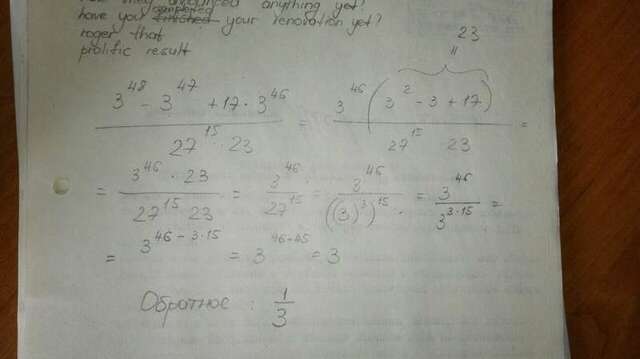 they announced anything yet?
have you completed finished your renovation yet?
roger that
prolific result
23
=
3^48 - 3^47 + 17 · 3^46 / 27^15 · 23 = 3^46 (3^2 - 3 + 17) / 27^15 23 =
= 3^46 · 23 / 27^15 23 = 3^46 / 27^15 = 3^46 / ((3)^3)^15 = 3^46 / 3^3·15 =
= 3^46 - 3·15 = 3^46-45 = 3
Обратное : 1/3